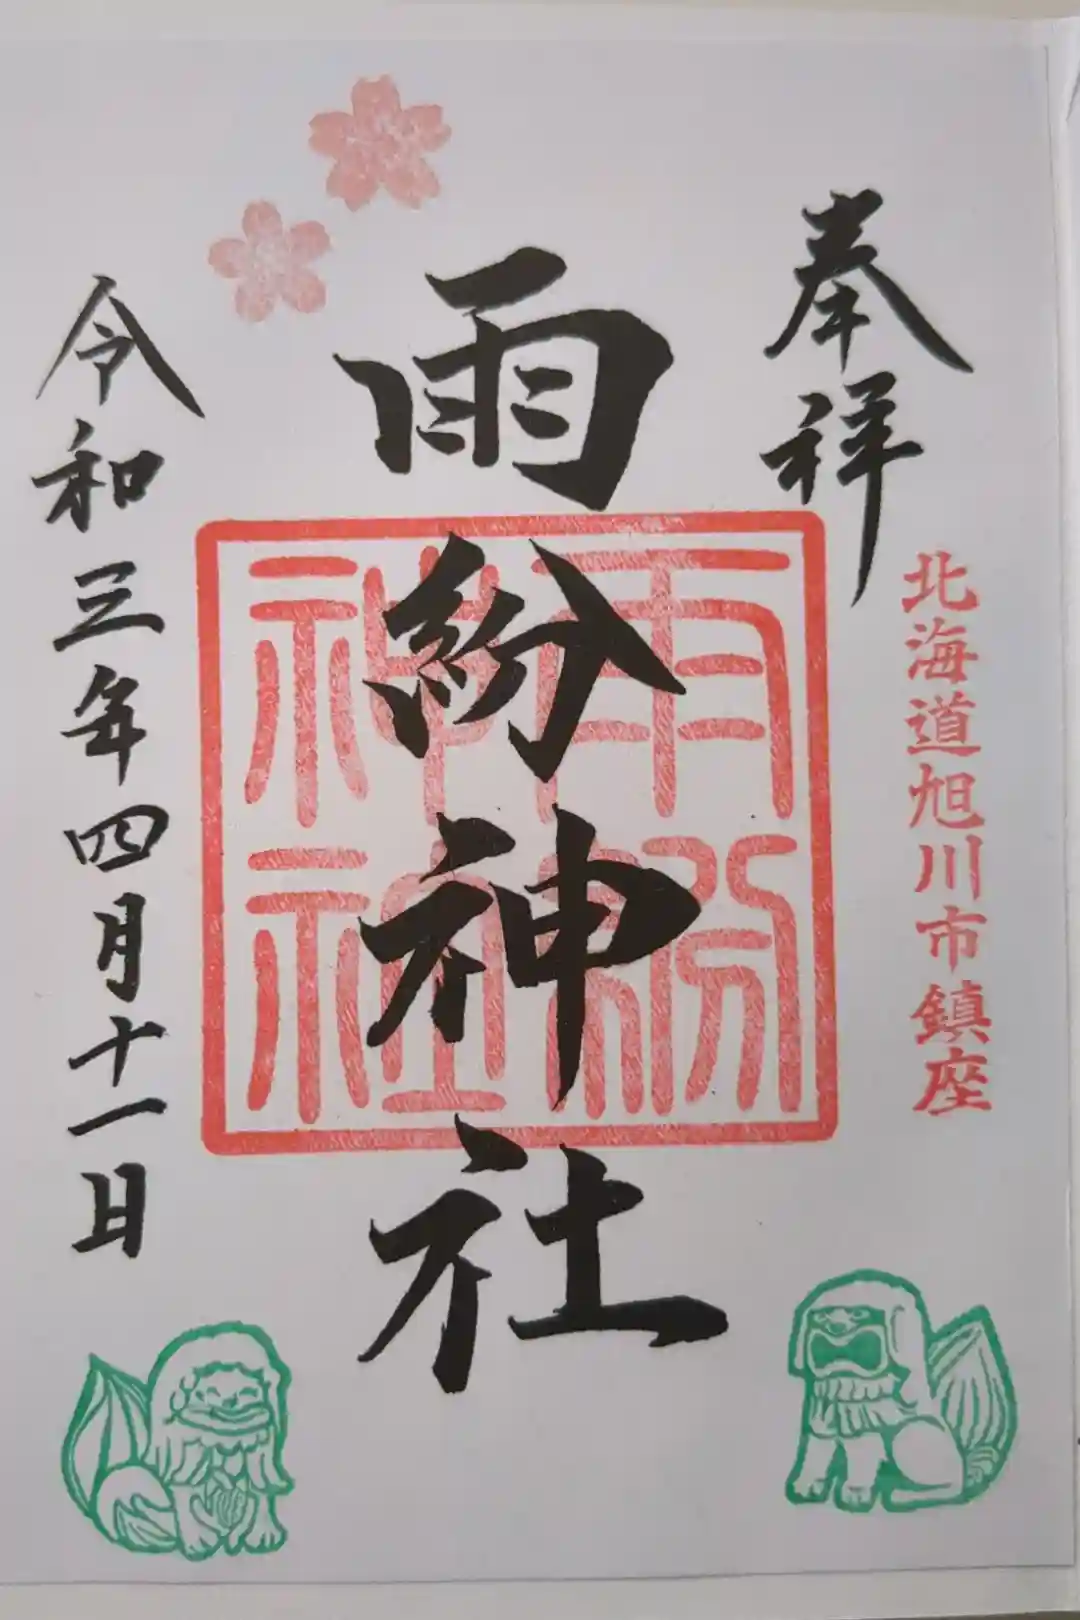 奉祥
北海道旭川市鎮座
雨紛神社
雨紛神社
令和三年四月十一日